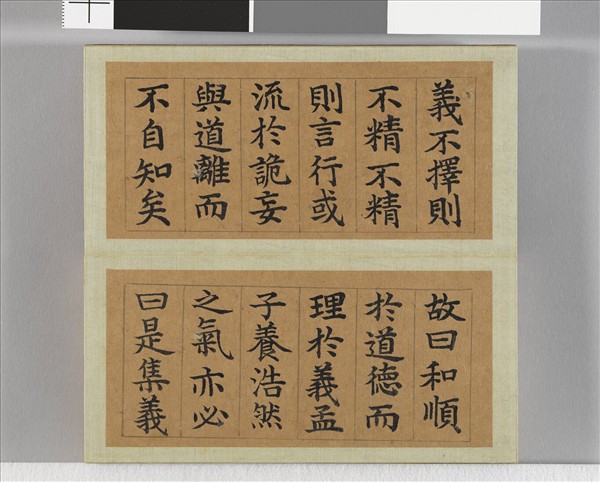 義不擇則
不精不精
則言行或
流於詭妄
與道離而
不自知矣
故曰和順
於道德而
理於義孟
子養浩然
之氣亦必
曰是集義